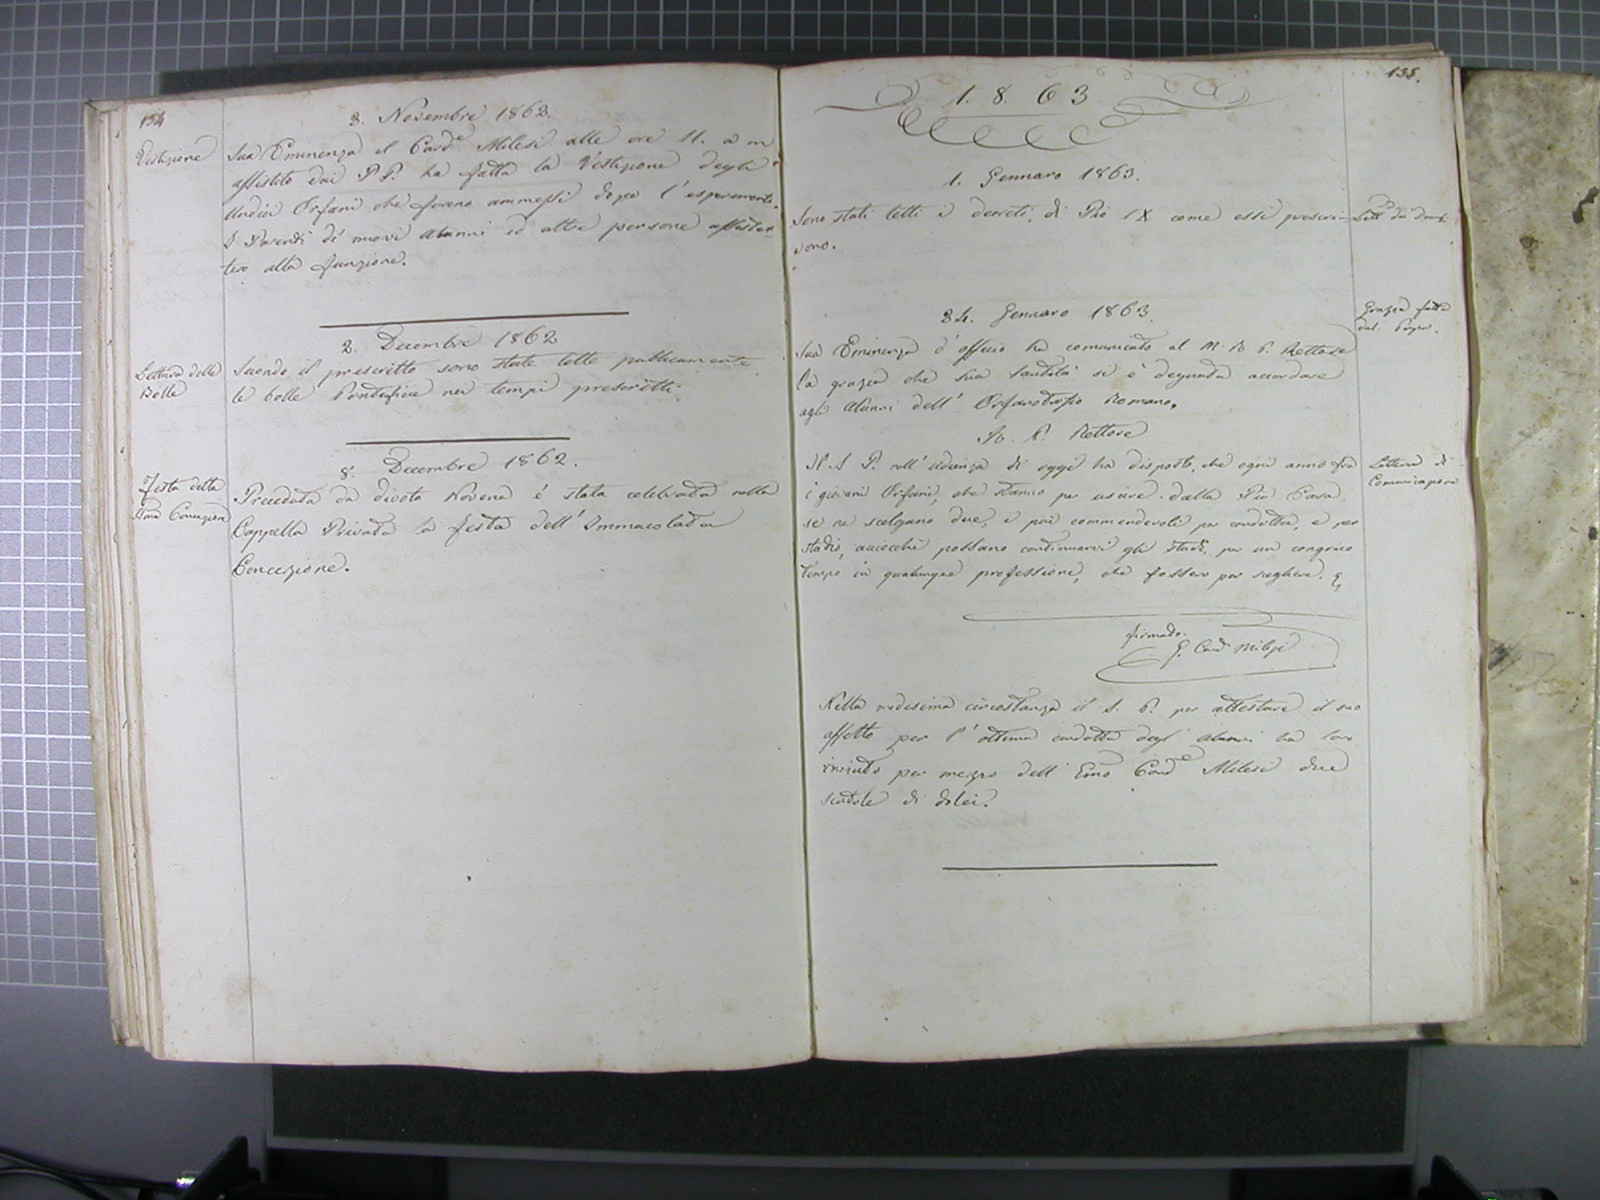 134
3. Novembre 1862.
Vestizione
Sua Eminenza il Card.e Milesi alle ore 11. a m
assistito dai P P. ha fatta la Vestizione degli
Undici Orfani che furono ammessi dopo l'esperimento.
I Parenti de' nuovi alunni ed altre persone assistet-
tero alla funzione.
2. Decembre 1862
Lettura delle
Bolle
Secondo il prescritto sono state lette publicamente
le bolle Pontificie nei tempi prescritti.
8. Decembre 1862.
Festa della
Imm Concezione
Preceduta da divota Novena è stata celebrata nella
Cappella Privata la festa dell'Immacolata
Concezione.
135.
1. 8. 6 3
1. Gennaro 1863.
Sono stati letti i decreti di Pio IX come essi prescri-
vono.
Lett. dei Decreti
24. Gennaro 1863.
Grazia fatta
dal Papa.
Sua Eminenza d'officio ha comunicato al M. R. P. Rettore
la grazia che Sua Santità si è degnata accordare
agli alunni dell'Orfanotrofio Romano.
M. R. Rettore
Lettera di
Comunicazione
Il S. P. nell'udienza di oggi ha disposto, che ogni anno fra
i giovani Orfani, che stanno per uscire dalla Pia Casa,
se ne scelgano due, i più commendevoli per condotta, e per
studio, acciocchè possano continuarvi gli studi, per un congruo
tempo in qualunque professione, che fossero per scegliere. &
firmato.
G. Card Milesi
Nella medesima circostanza il S. P. per attestare il suo
affetto per l'ottima condotta degl'alunni ha loro
inviato per mezzo dell'Emo Card.e Milesi due
scatole di dolci.